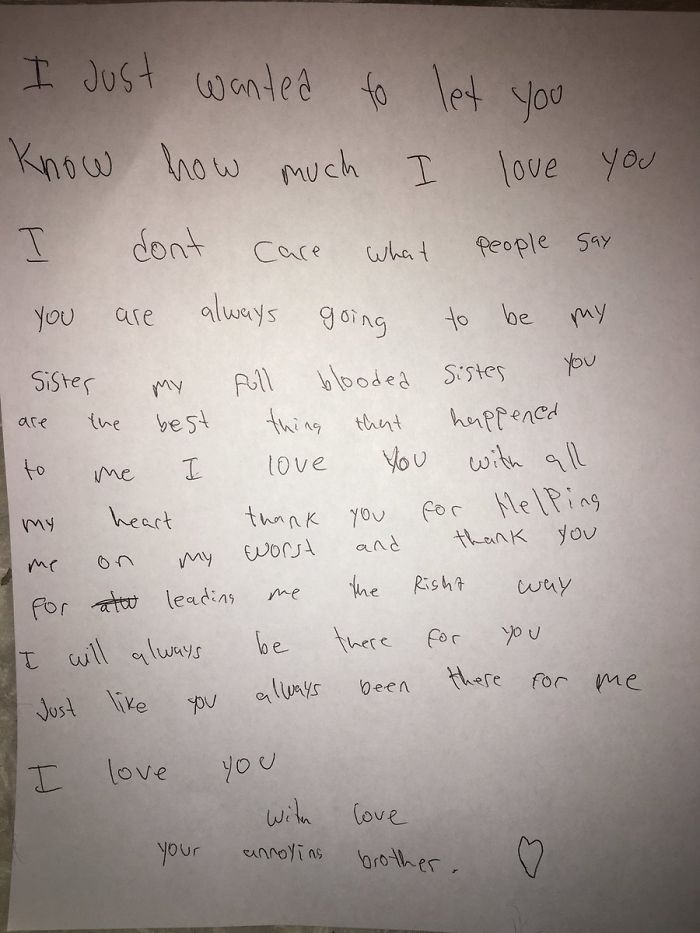 I Just wanted to let you
Know how much I love you
I dont care what people say
you are always going to be my
Sister my full blooded sister you
are the best thing that happened
to me I love you with all
my heart thank you for Helping
me on my worst and thank you
For leading me the Right way
I will always be there for you
Just like you always been there for me
I love you
with love
your annoying brother.